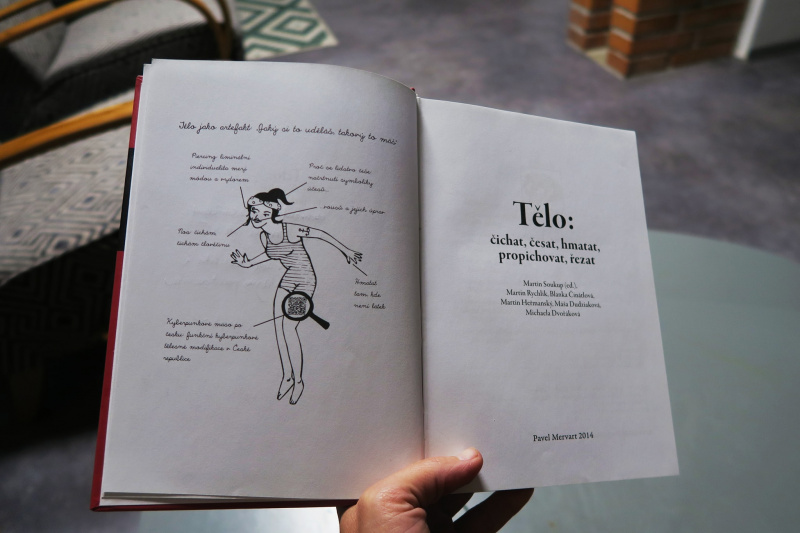 Tělo jako artefakt. Jaký si to uděláš, takový to máš
Piercing liminální
individualita mezi
módou a vzdorem
Proč se lidstvo češe:
načrtnutí symboliky
účesů...
vousů a jejich úprav
Nos tichám
tichám člověčinu
Hmatat
tam, kde
není látek
Kyberpunkové maso po
česku: funkční kyberpunkové
tělesné modifikace v České
republice
Tělo:
čichat, česat, hmatat,
propichovat, řezat
Martin Soukup (ed.),
Martin Rychlík, Blanka Činátlová,
Martin Heřmanský, Maia Dudziaková,
Michaela Dvořáková
Pavel Mervart 2014